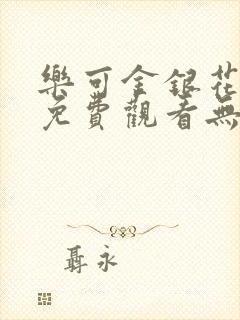 樂可金銀花
免費觀看無
聶永